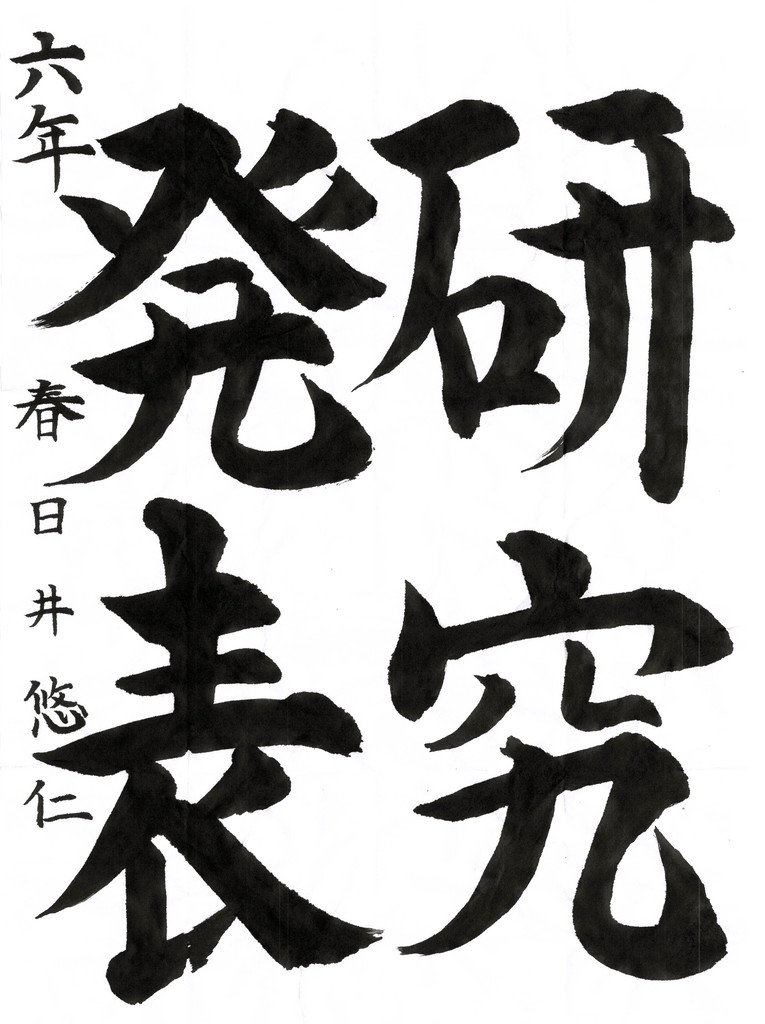 研究
発表
六年 春日井悠仁